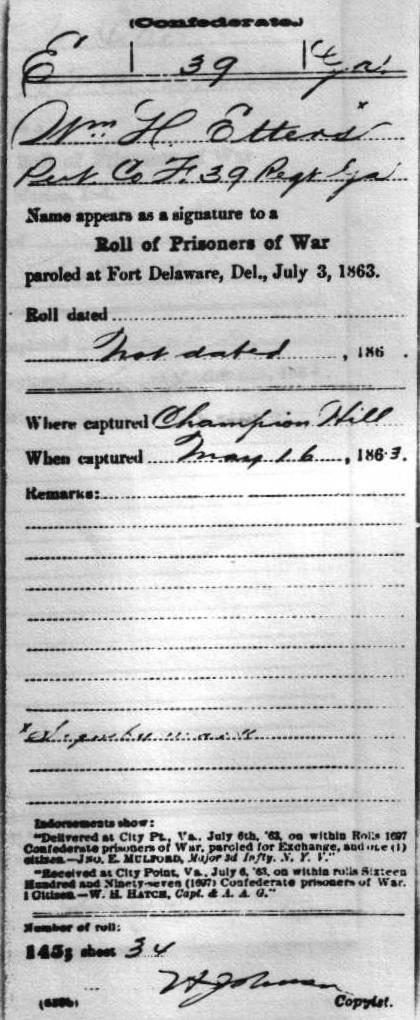 (Confederate.)
E | 39 | Ga.
Wm H. Etters x
Pvt. Co F. 39 Regt Ga
Name appears as a signature to a
Roll of Prisoners of War
paroled at Fort Delaware, Del., July 3, 1863.
Roll dated
Not dated, 186 .
Where captured Champion Hill
When captured May 16, 1863.
Remarks:
x Signs by mark
Indorsements show:
"Delivered at City Pt., Va., July 6th, '63, on within Rolls 1697
Confederate prisoners of War, paroled for Exchange, and one (1)
citizen.—JNO. E. MULFORD, Major 3d Infty. N. Y. V."
"Received at City Point, Va., July 6, '63, on within rolls Sixteen
Hundred and Ninety-seven (1697) Confederate prisoners of War.
1 Citizen.—W. H. HATCH, Capt. & A. A. G."
Number of roll:
145; sheet 34
Johnson
(639b) Copyist.